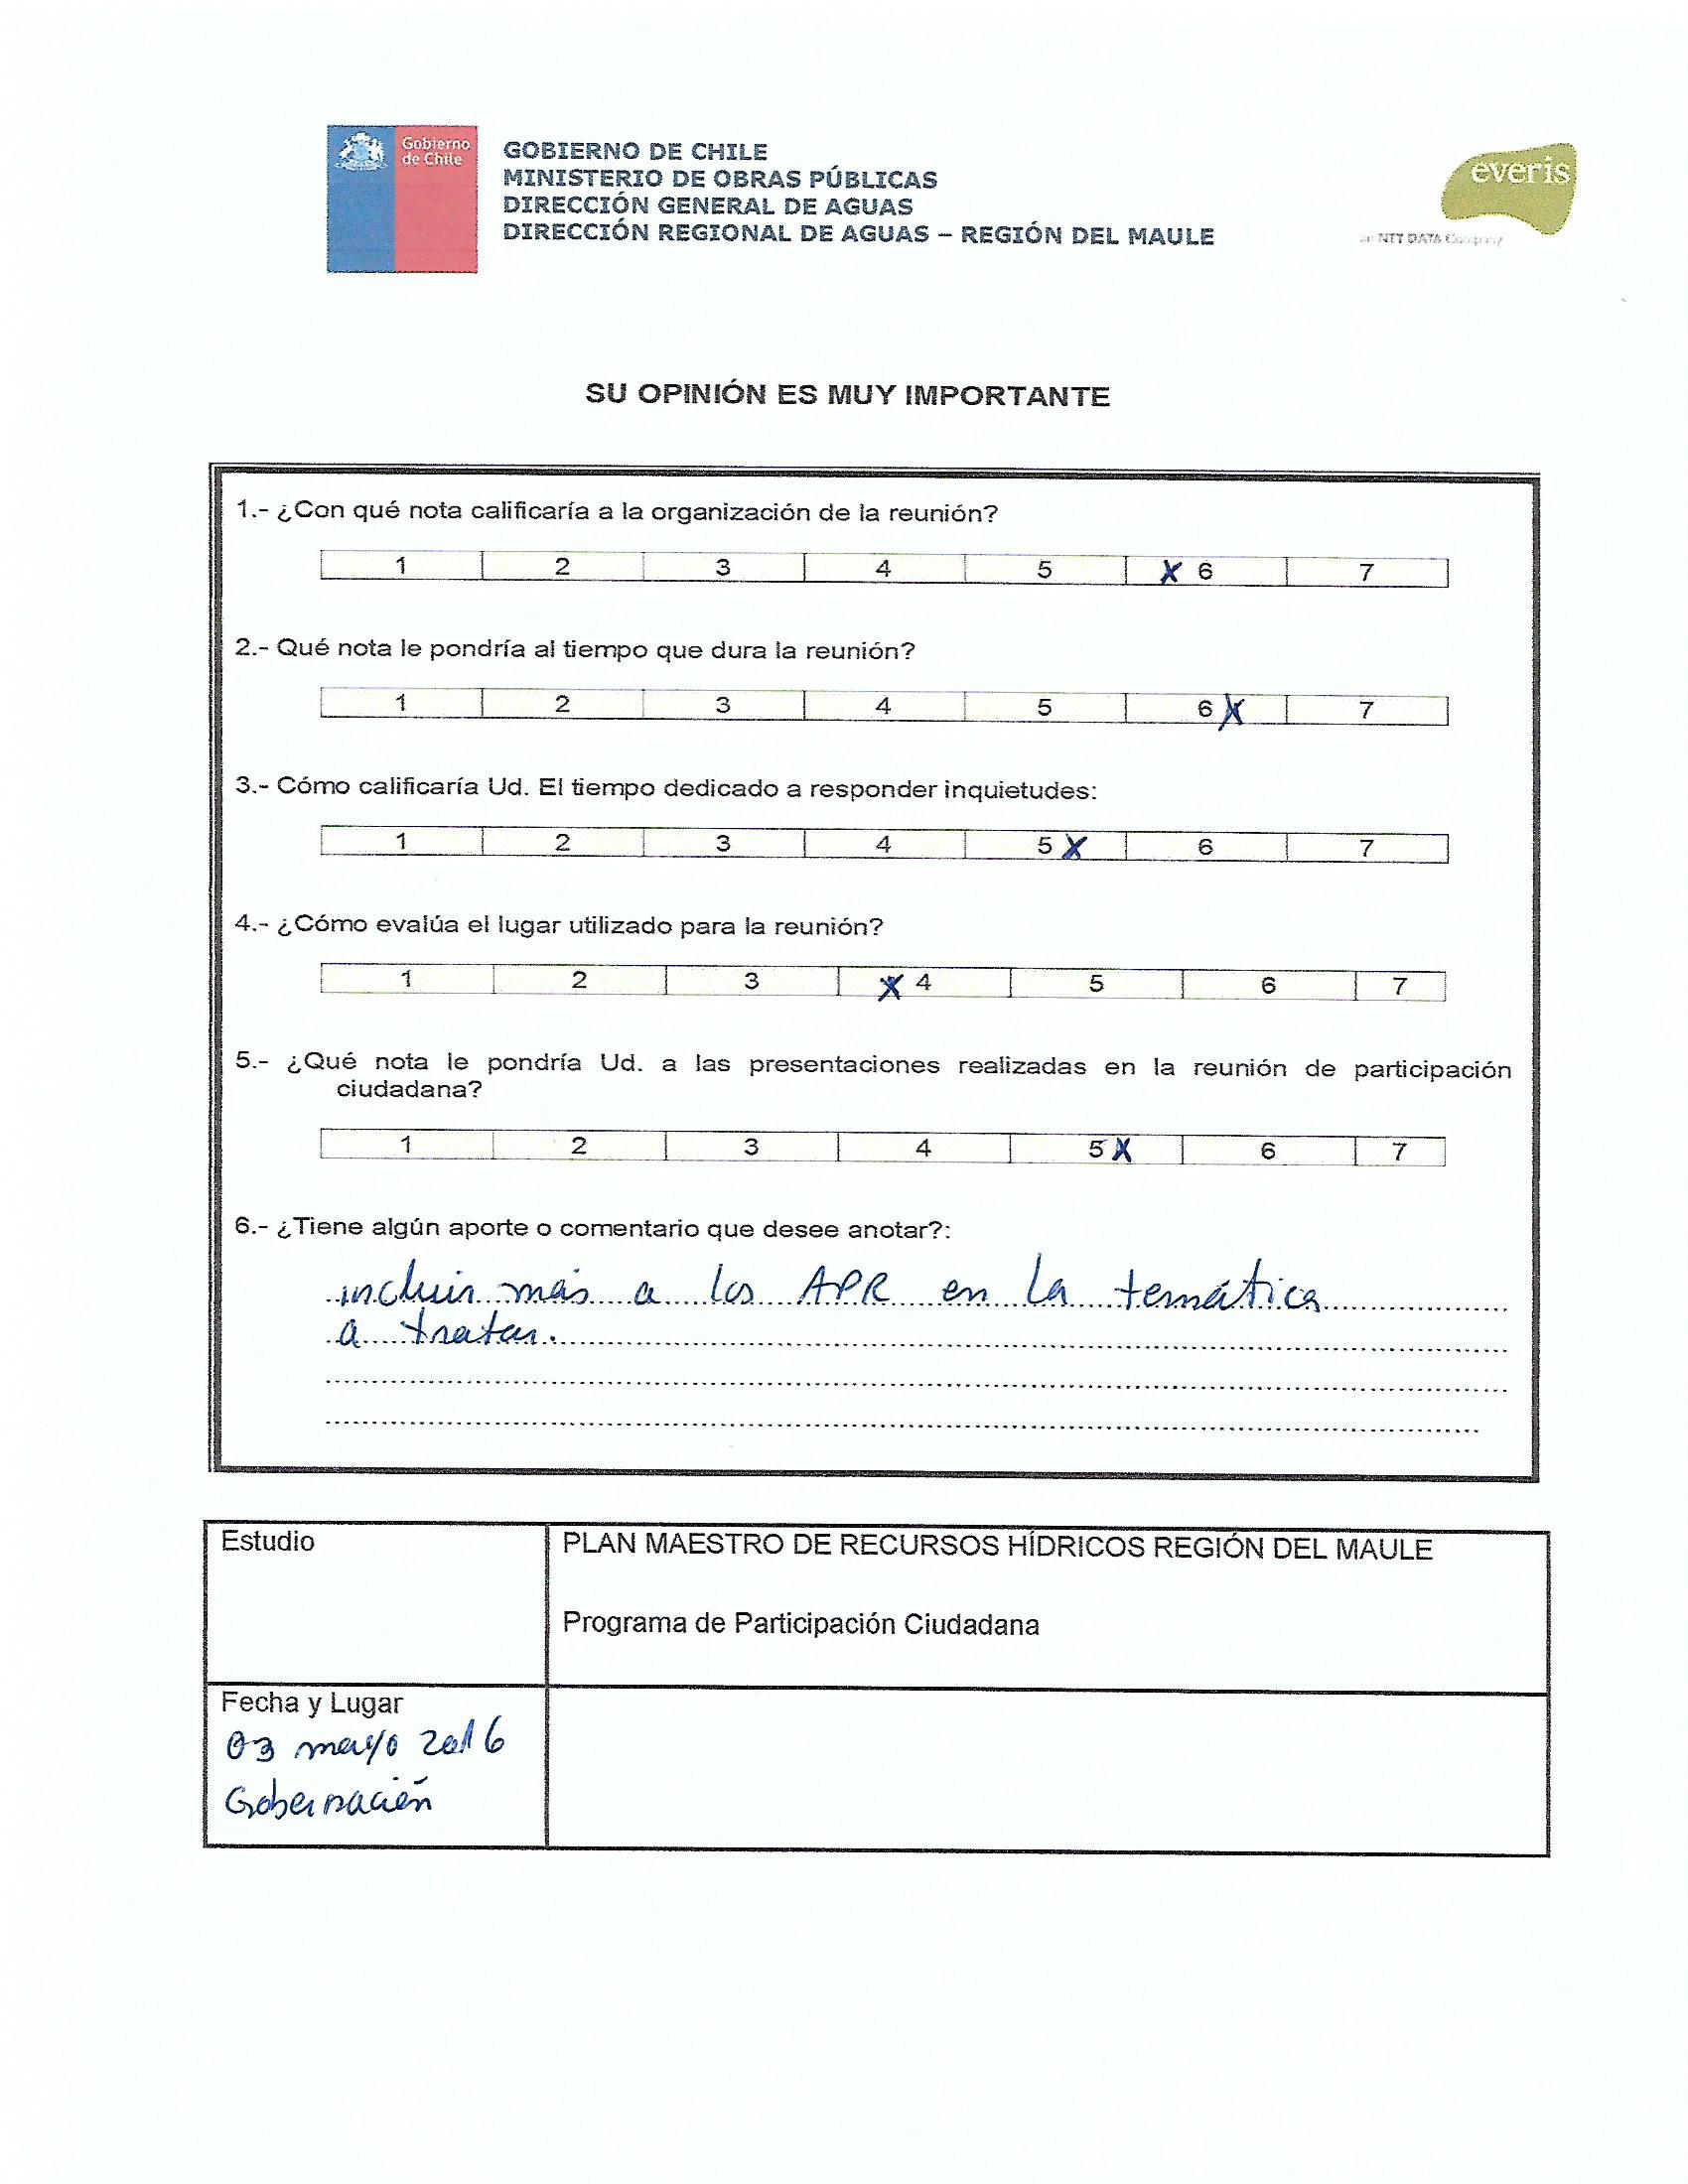 Gobierno
de Chile
GOBIERNO DE CHILE
MINISTERIO DE OBRAS PÚBLICAS
DIRECCIÓN GENERAL DE AGUAS
DIRECCIÓN REGIONAL DE AGUAS – REGIÓN DEL MAULE
everis
an NTT DATA Company
SU OPINIÓN ES MUY IMPORTANTE
1.- ¿Con qué nota calificaría a la organización de la reunión?
1 2 3 4 5 X 6 7
2.- Qué nota le pondría al tiempo que dura la reunión?
1 2 3 4 5 6 X 7
3.- Cómo calificaría Ud. El tiempo dedicado a responder inquietudes:
1 2 3 4 5 X 6 7
4.- ¿Cómo evalúa el lugar utilizado para la reunión?
1 2 3 X 4 5 6 7
5.- ¿Qué nota le pondría Ud. a las presentaciones realizadas en la reunión de participación
ciudadana?
1 2 3 4 5 X 6 7
6.- ¿Tiene algún aporte o comentario que desee anotar?:
incluir más a los APR en la temática
a tratar.
Estudio
PLAN MAESTRO DE RECURSOS HÍDRICOS REGIÓN DEL MAULE
Programa de Participación Ciudadana
Fecha y Lugar
03 mayo 2016
Gobernación